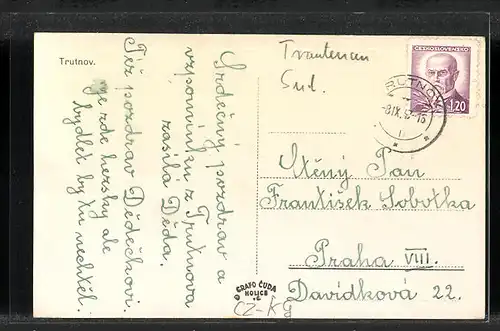 Trutnov.
Srdečný pozdrav a
vzpomínku z Trutnova
zasílá Děda.
Též pozdrav Dědečkovi.
je zde hezky ale
bydlet by tu nechtěl.
Trautenau
Sud.
ČESKOSLOVENSKO
1.20
TRUTNOV
-8.IX.
Ctěný Pan
František Sobotka
Praha VIII.
Davídková 22.
© GRAFO ČUDA
HOLICE
CZ-K